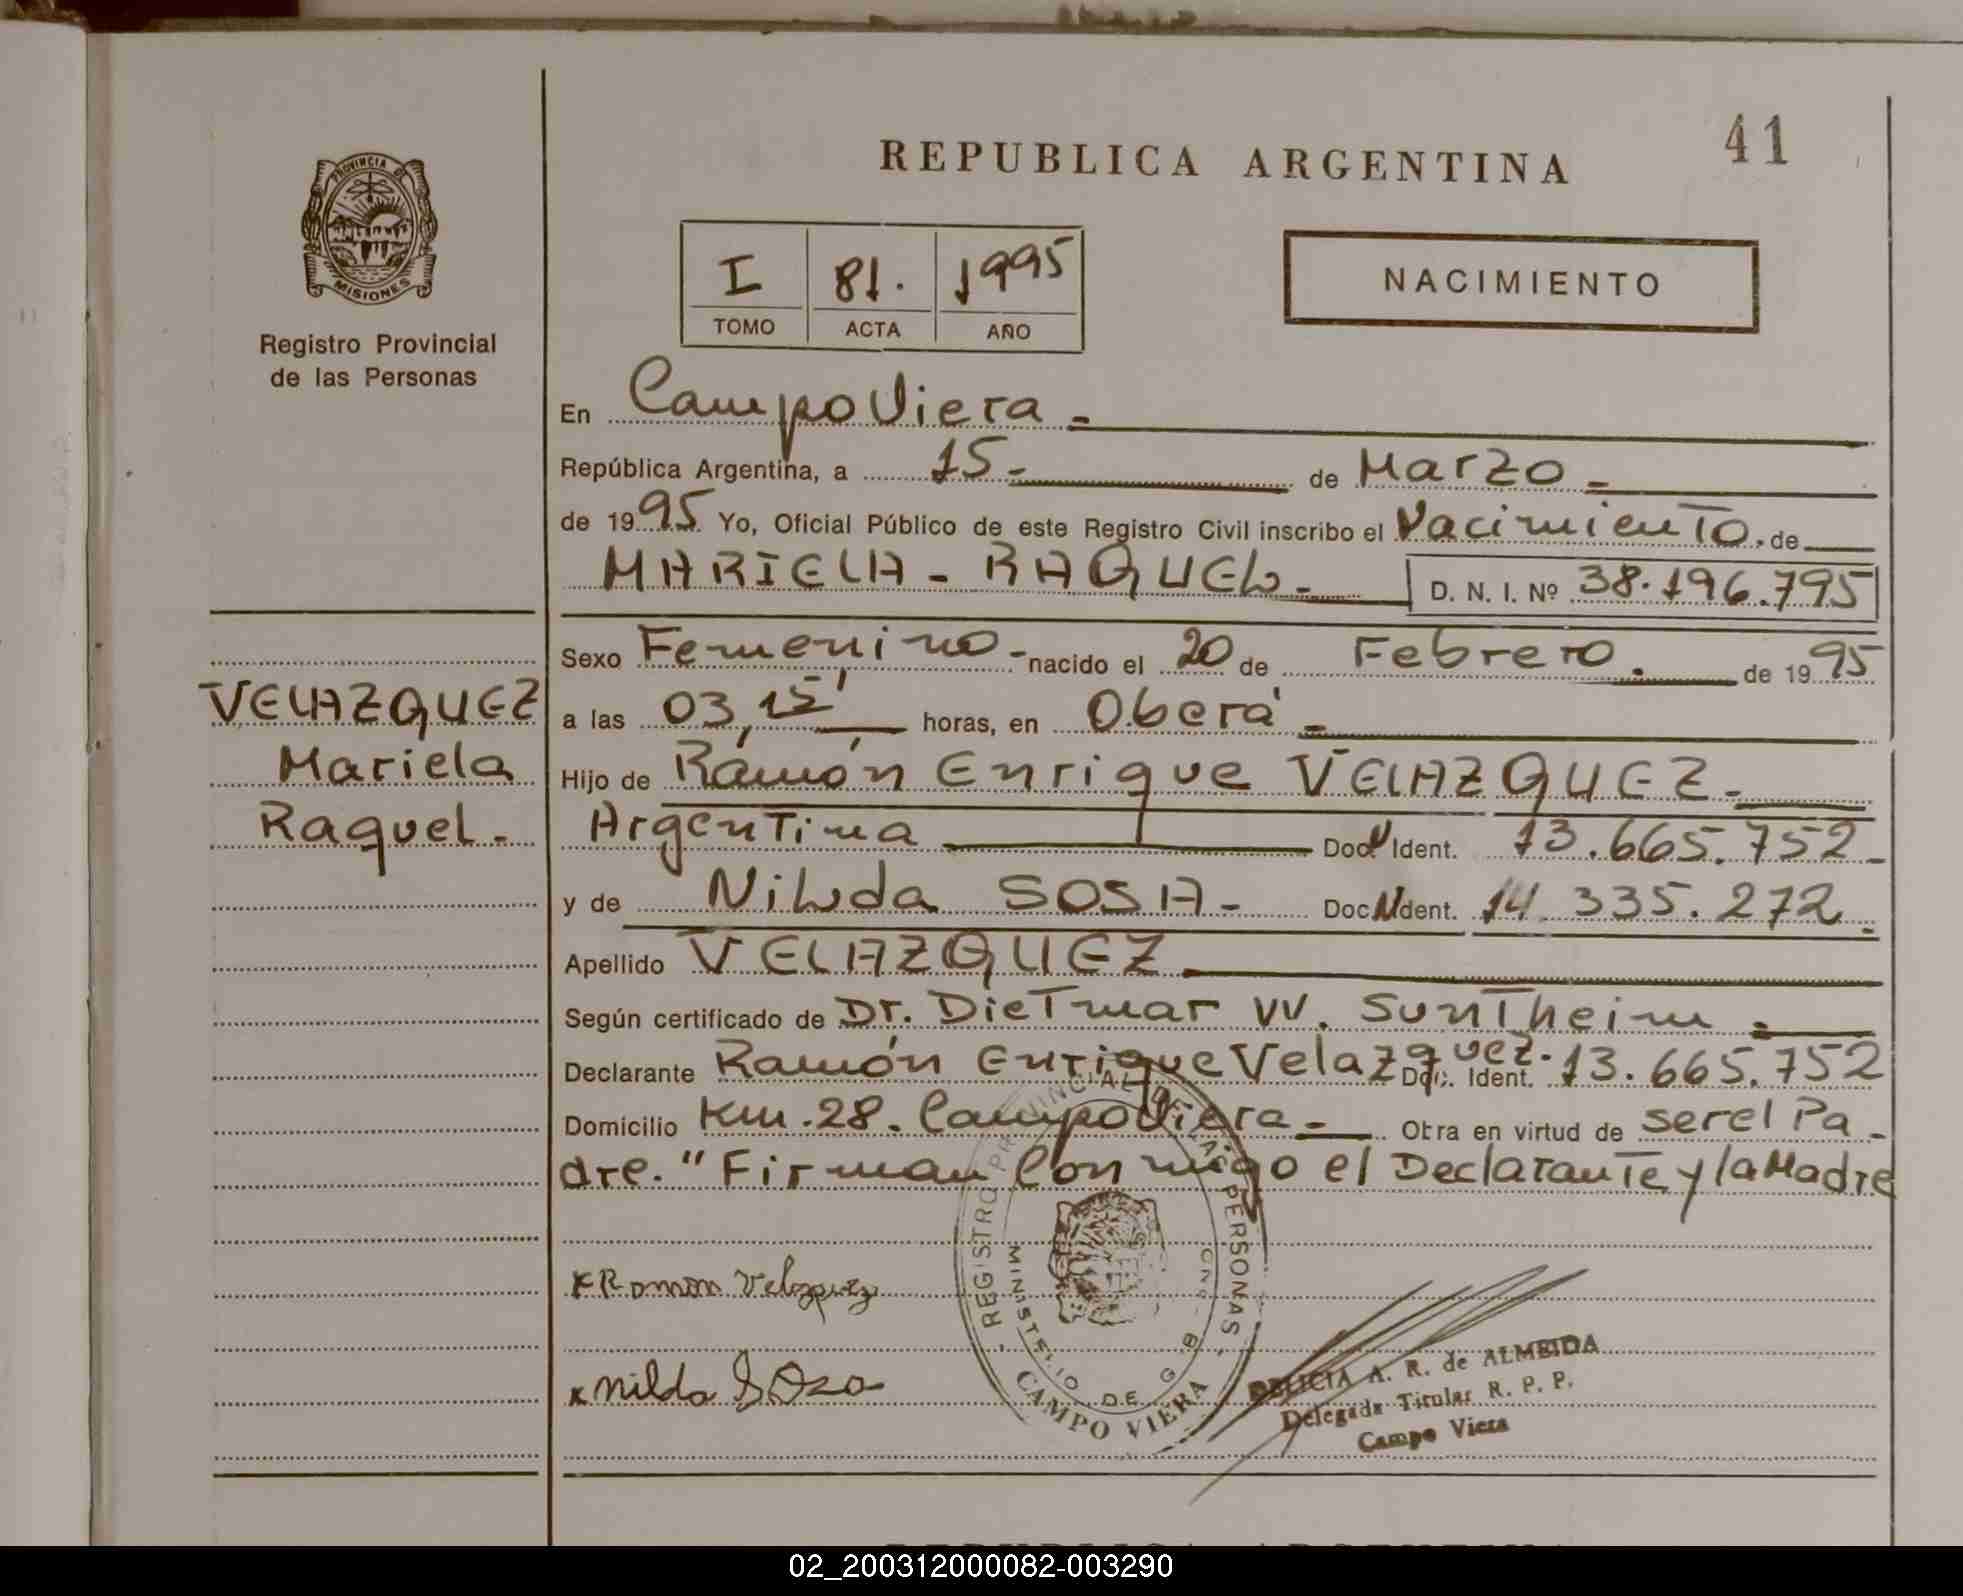 REPUBLICA ARGENTINA
41
PROVINCIA DE
MISIONES
Registro Provincial
de las Personas
I
81.
1995
TOMO
ACTA
AÑO
NACIMIENTO
En Campo Viera -
República Argentina, a 15- de Marzo -
de 1995 Yo, Oficial Público de este Registro Civil inscribo el Nacimiento. de
MARIELA - RAQUEL - D. N. I. Nº 38.196.795
Sexo Femenino - nacido el 20 de Febrero. de 1995
VELAZQUEZ
Mariela
Raquel -
a las 03,15' horas, en Oberá -
Hijo de Ramón Enrique VELAZQUEZ -
Argentina Doc N Ident. 13.665.752 -
y de Nilda SOSA - Doc N Ident. 14.335.272 -
Apellido VELAZQUEZ
Según certificado de Dr. Dietmar W. Suntheim -
Declarante Ramón Enrique Velazquez. Doc. Ident. 13.665.752
Domicilio Km. 28. Campo Viera - Obra en virtud de ser el Pa -
dre. "Firman Conmigo el Declarante y la Madre
x Ramon Velazquez
x Nilda Sosa
REGISTRO PROVINCIAL DE LAS PERSONAS
MINISTERIO DE G.
CAMPO VIERA
DELICIA A. R. de ALMEIDA
Delegada Titular R. P. P.
Campo Viera
02_200312000082-003290